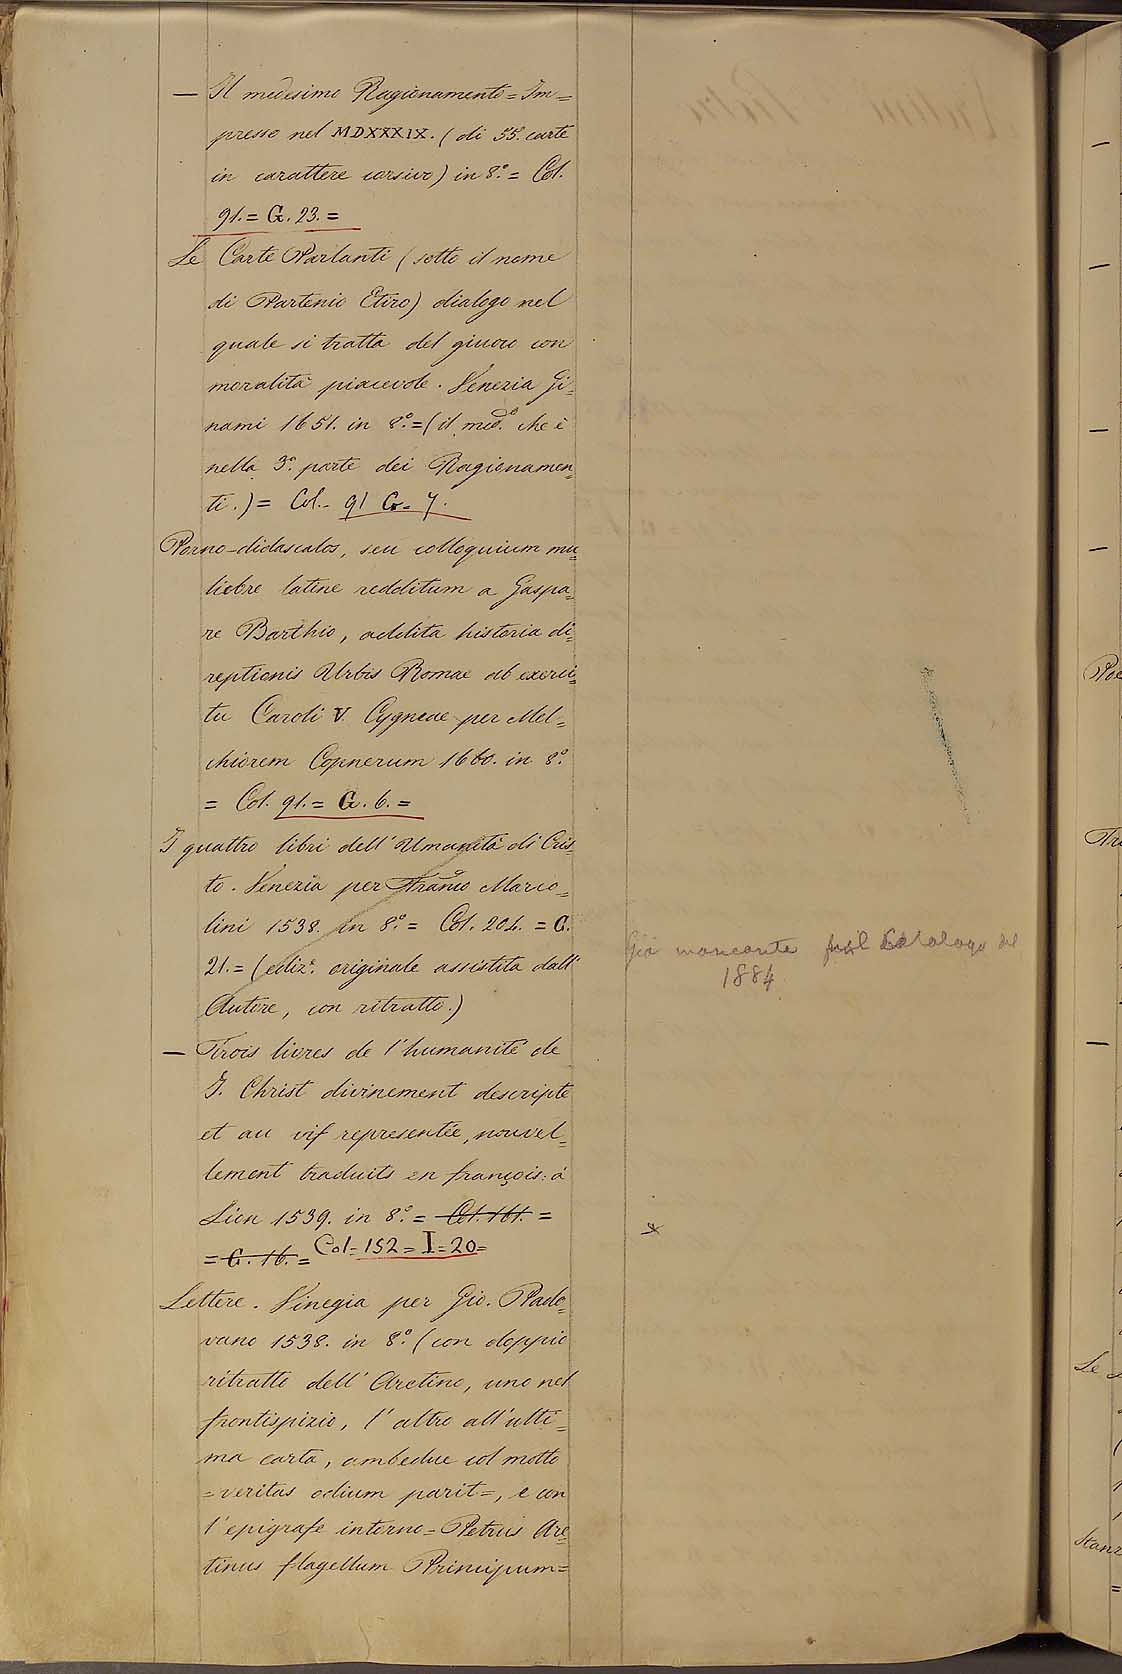 — Il medesimo Ragionamento = Im=
presso nel MDXXXIX. (di 55. carte
in carattere corsivo) in 8.° = Col.
91. = G. 23. =
Le Carte Parlanti (sotto il nome
di Partenio Etiro) dialogo nel
quale si tratta del giuoco con
moralità piacevole. Venezia Gi=
nami 1651. in 8.° = (il med.° che è
nella 3.ª parte dei Ragionamen=
ti.) = Col. - 91 G - 7.
Porno-didascalos, seu colloquium mu=
liebre latine redditum a Gaspa=
re Barthio, addita historia di=
reptionis Urbis Romae ab exerci=
tu Caroli V Cygneae per Mel=
chiorem Copnerum 1660. in 8.°
= Col. 91. = G. 6. =
I quattro libri dell' Umanità di Cris=
to. Venezia per Franco Marco=
lini 1538. in 8.° = Col. 204. = G.
21. = (ediz.e originale assistita dall'
Autore, con ritratto.)
Già mancante pel Catalogo del
1884
— Trois livres de l'humanité de
J. Christ divinement descripte
et au vif representée, nouvel=
lement traduits en françois: à
Lion 1539. in 8.° = Col. 161. =
= G. 16. = Col = 152 = I = 20 =
Lettere. Vinegia per Gio. Pado=
vano 1538. in 8.° (con doppio
ritratto dell' Aretino, uno nel
frontispizio, l'altro all'ulti=
ma carta, ambedue col motto
= veritas odium parit =, e con
l'epigrafe intorno = Petrus Are=
tinus flagellum Principum =
Poe
Tr
Le
Stanz